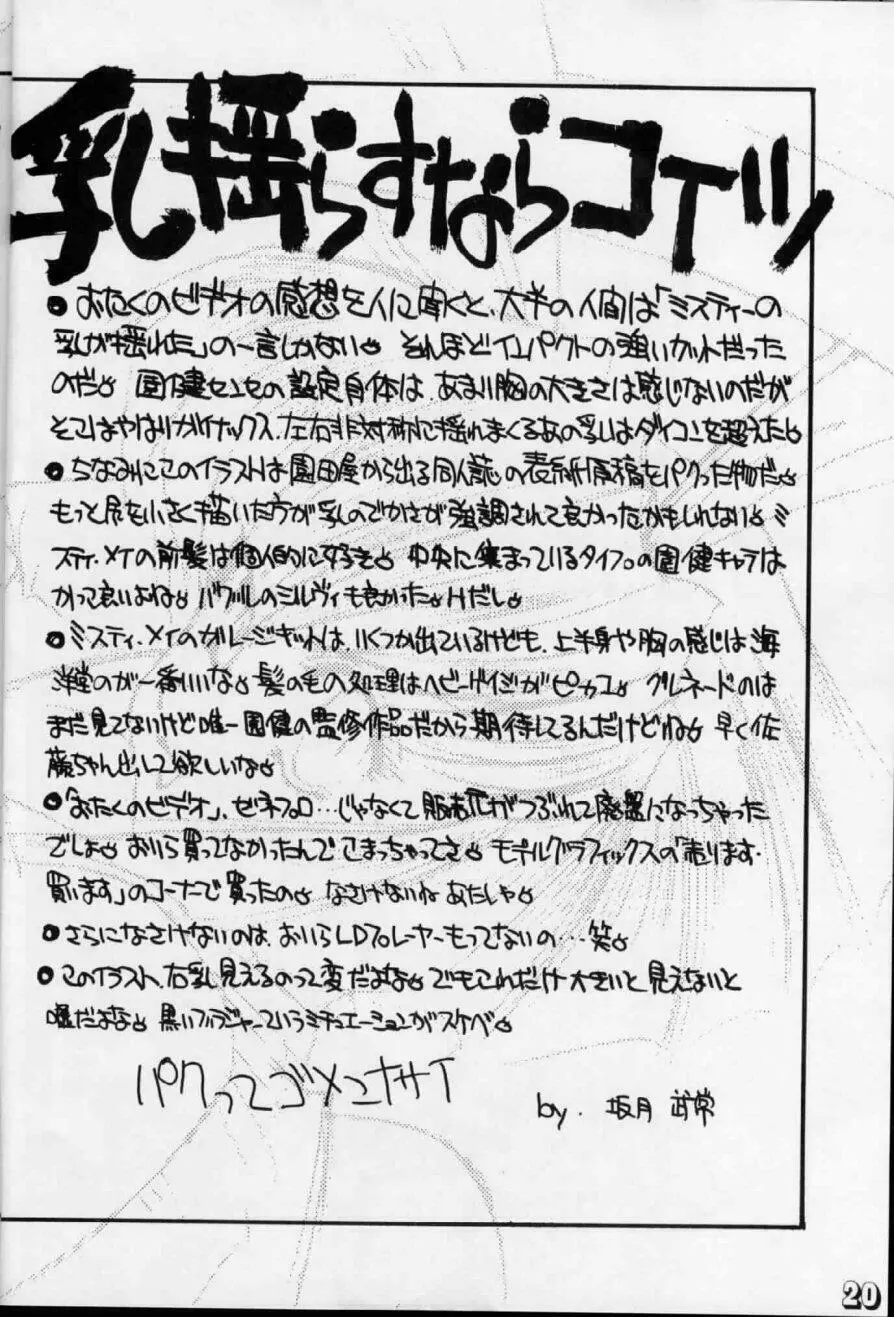 乳揺らすならコイツ
●おたくのビデオの感想を人に聞くと、大半の人間は「ミスティーの
乳が揺れた」の一言しかない。それほどインパクトの強いカットだった
のだ。園健センセの設定自体は、あまり胸の大きさは感じないのだが
そこはやはりガイナックス、左右非対称に揺れまくるあの乳はダイコンを超えた。
●ちなみにこのイラストは園田屋から出る同人誌の表紙原稿をパクった物だ。
もっと尻を小さく描いた方が乳のでかさが強調されて良かったかもしれない。ミ
スティ・メイの前髪は個人的に好き。中央に集まっているタイプの園健キャラは
かって良いよね。バヴルのシルヴィも良かった。Hだし。
●ミスティ・メイのガレージキットは、いくつか出ているけども、上半身や胸の感じは海
洋堂のが一番いいな。髪の毛の処理はヘビーゲイジがピカコ。グレネードのは
まだ見てないけど唯一園健の監修作品だから期待してるんだけどね。早く佐
藤ちゃん出して欲しいな。
●「おたくのビデオ」、ゼネプロ…じゃなくて販売元がつぶれて廃盤になっちゃった
でしょ。おいら買ってなかったんでこまっちゃってさ。モデルグラフィックスの「売ります・
買います」のコーナーで買ったの。なさけないね あたしゃ。
●さらになさけないのは、おいらLDプレーヤーもってないの…笑。
●このイラスト、右乳見えるのって変だよな。でもこれだけ大きいと見えないと
嘘だよな。黒いブラジャーっていうシチュエーションがスケベ。
パクってゴメンナサイ
by. 坂月 武常
20